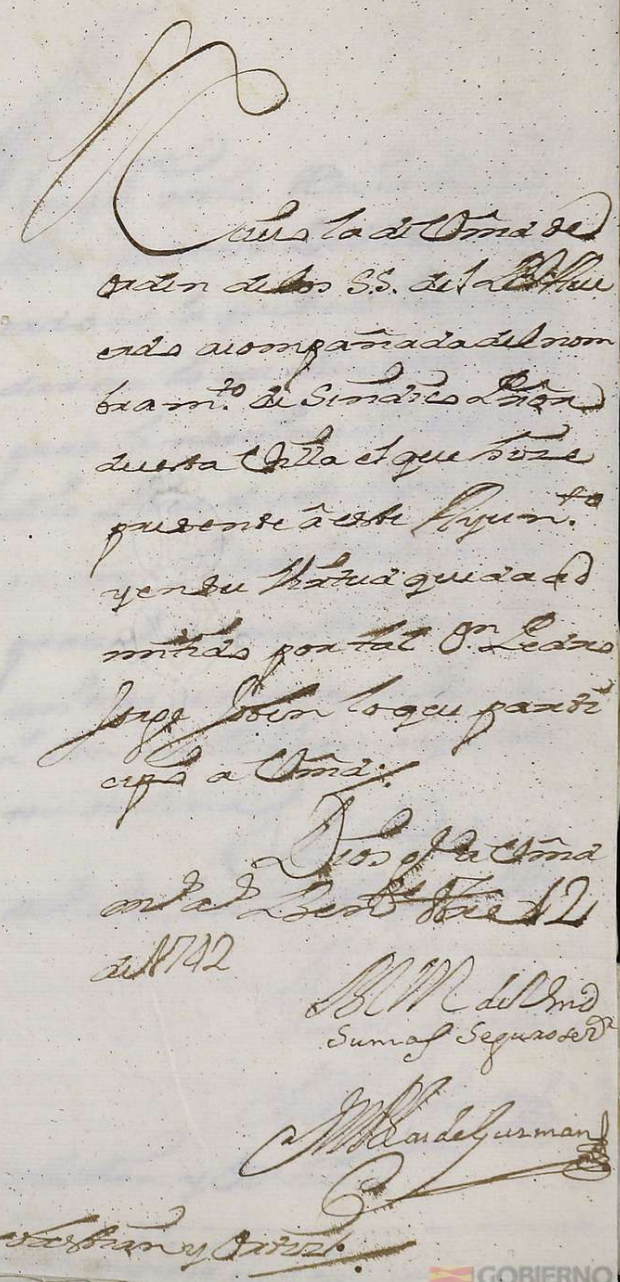 Recivi la de Vmd de
orden de los SS. del Rl Acu
erdo acompañada del nom
bram.to de Sindico Pror
de esta Villa el que hize
presente â este Ayun.to
y en su Virtud queda ad
mitido por tal Dn Pedro
Jorge lo qe parti
cipo a Vmd.
Dios gde a Vmd
ms as 12
de 1742
BLM de Vmd
su mas seguro serdr
de Guzman
y Ortiz.
GOBIERNO